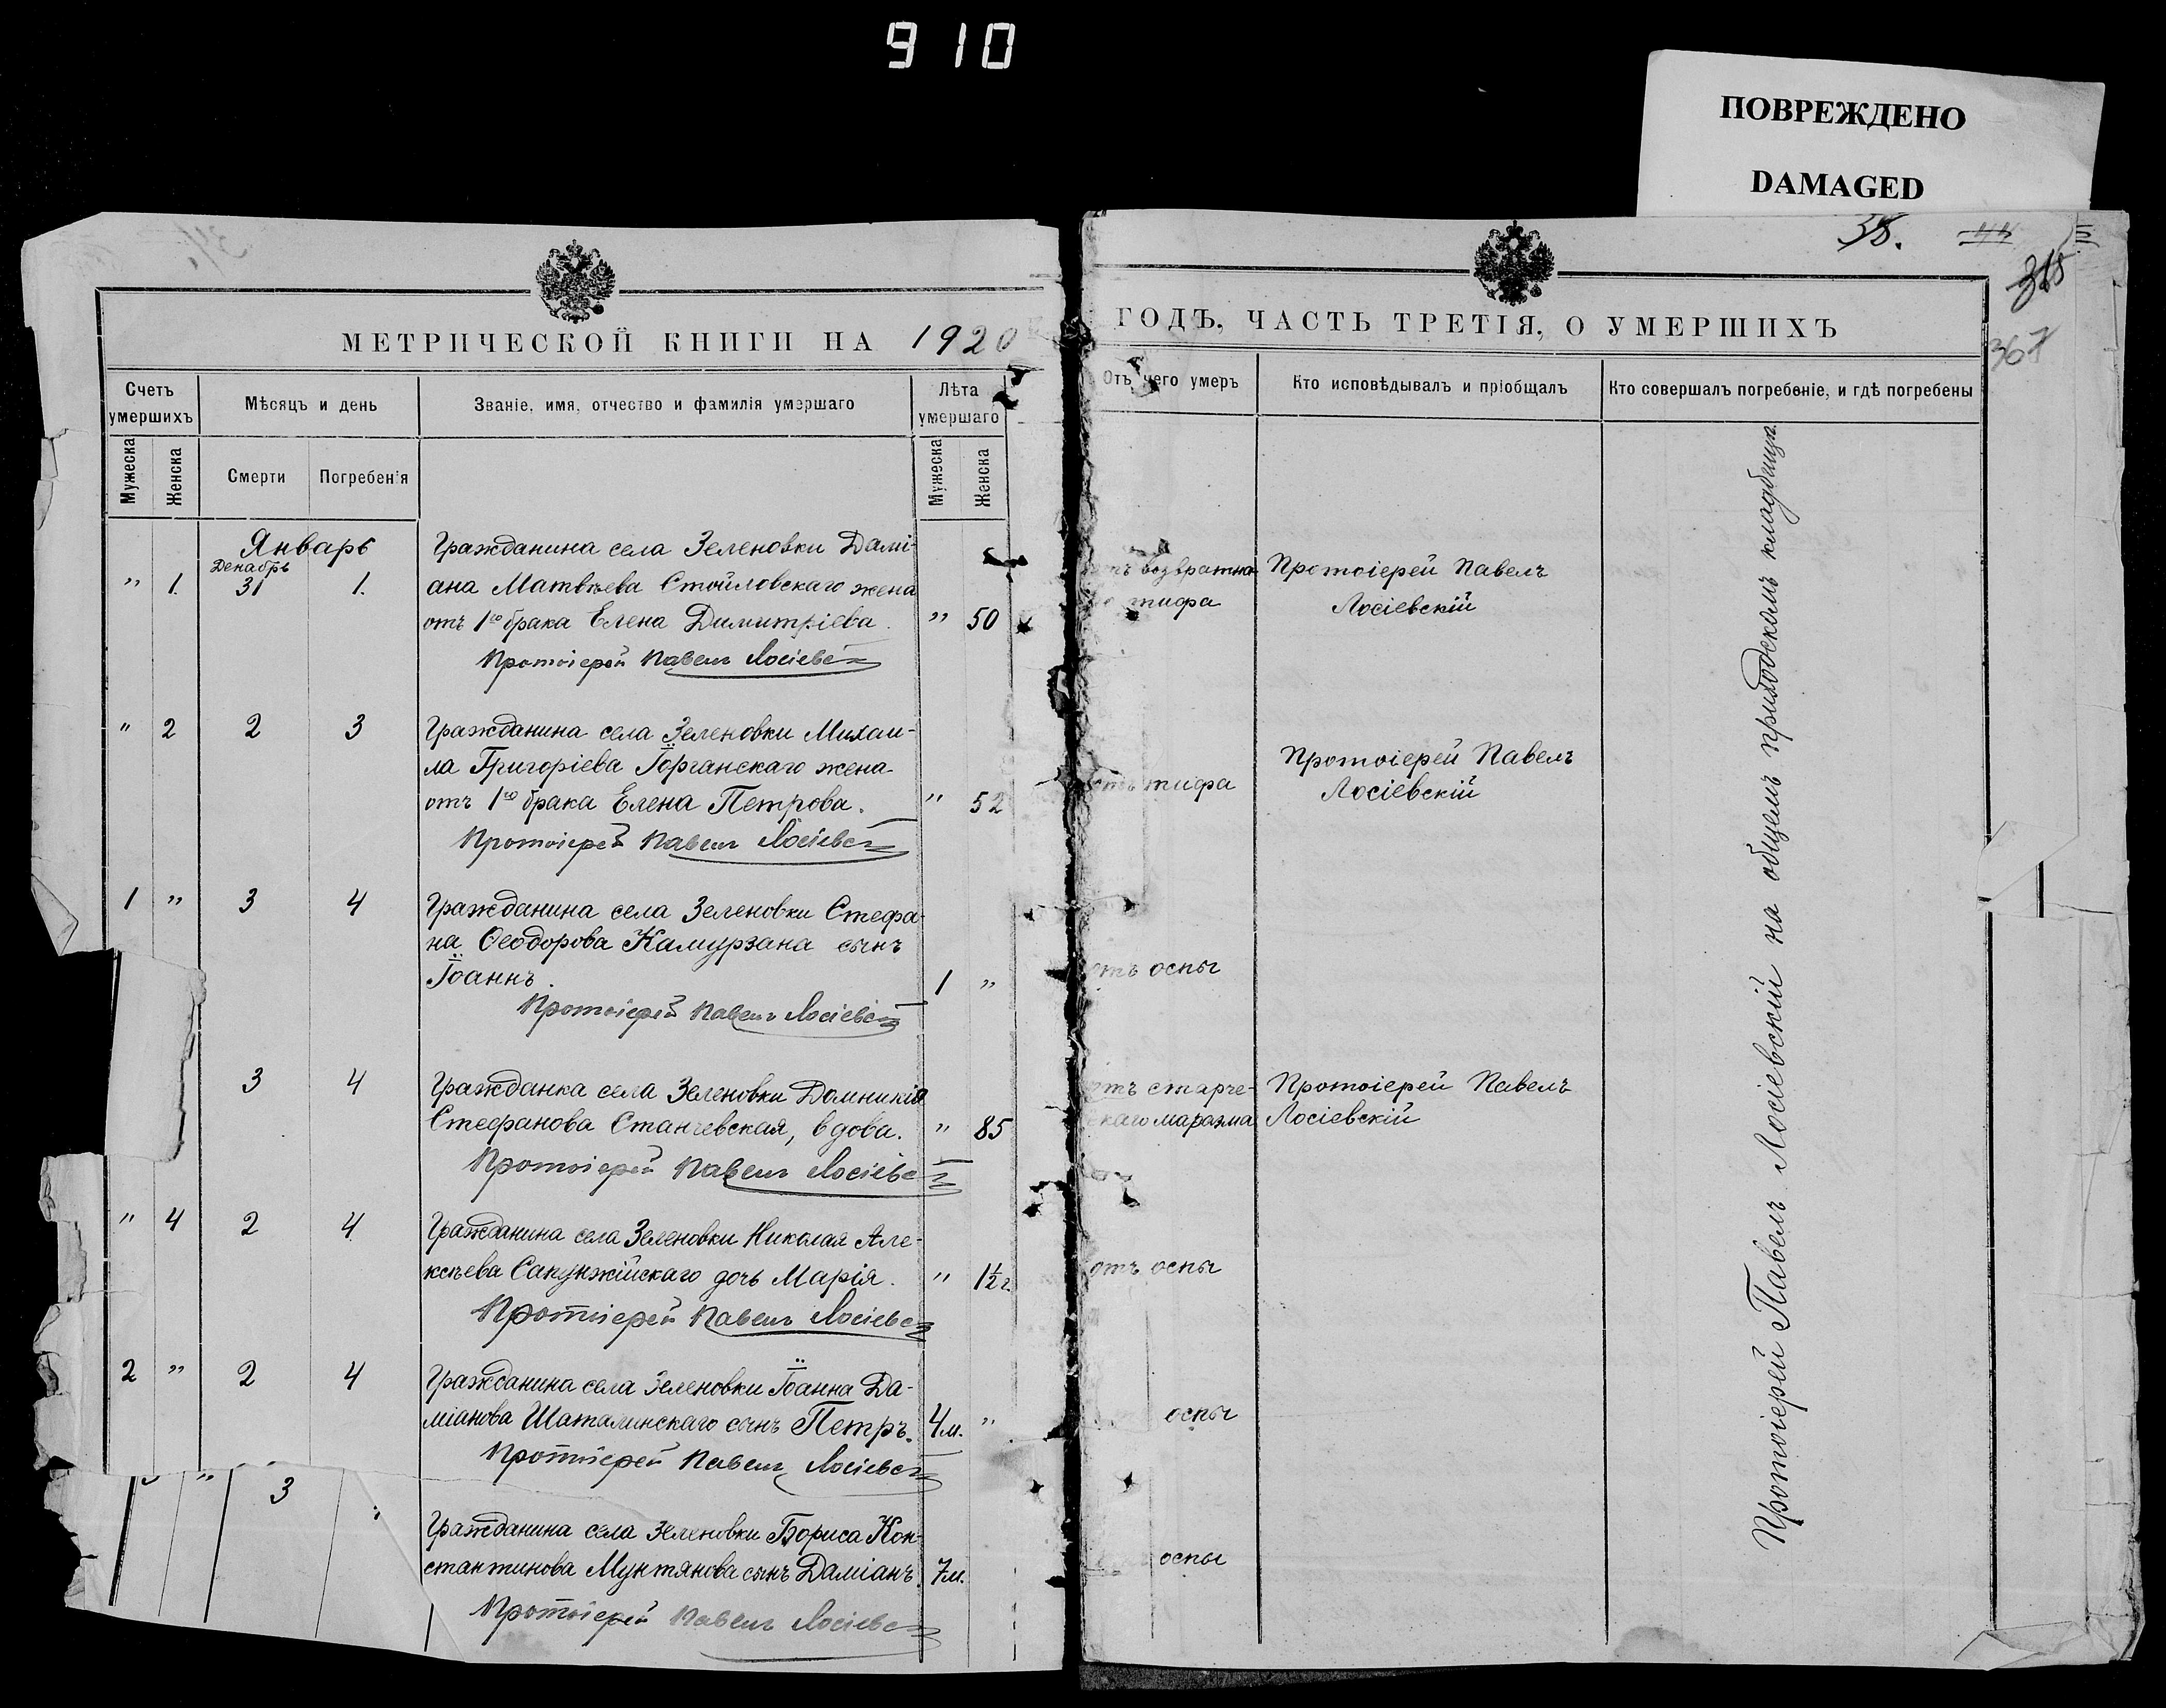 910
ПОВРЕЖДЕНО
DAMAGED
38.
318
367
МЕТРИЧЕСКОЙ КНИГИ НА 1920
ГОДЪ, ЧАСТЬ ТРЕТІЯ, О УМЕРШИХЪ
Счетъ умершихъ
Мѣсяцъ и день
Званіе, имя, отчество и фамилія умершаго
Лѣта умершаго
Отъ чего умеръ
Кто исповѣдывалъ и пріобщалъ
Кто совершалъ погребеніе, и гдѣ погребены
Мужеска
Женска
Смерти
Погребенія
Мужеска
Женска
Январь
Декабрь
" 1. 31 1.
Гражданина села Зеленовки Дамі-
ана Матвѣева Стойловскаго жена
отъ 1го брака Елена Димитріева. " 50
Протоіерей Павелъ Лосіевскій
отъ возвратна-
го тифа
Протоіерей Павелъ
Лосіевскій
" 2 2 3
Гражданина села Зеленовки Михаи-
ла Григоріева Горганскаго жена
отъ 1го брака Елена Петрова. " 52
Протоіерей Павелъ Лосіевскій
отъ тифа
Протоіерей Павелъ
Лосіевскій
1 " 3 4
Гражданина села Зеленовки Стефа-
на Ѳеодорова Камурзана сынъ
Іоаннъ. 1 "
Протоіерей Павелъ Лосіевскій
отъ оспы
3 4
Гражданка села Зеленовки Домникія
Стефанова Станчевская, вдова. " 85
Протоіерей Павелъ Лосіевскій
отъ старче-
скаго маразма
Протоіерей Павелъ
Лосіевскій
" 4 2 4
Гражданина села Зеленовки Николая Але-
ксѣева Сакунжійскаго дочь Марія. " 1½ г.
Протоіерей Павелъ Лосіевскій
отъ оспы
2 " 2 4
Гражданина села Зеленовки Іоанна Да-
міанова Шаталинскаго сынъ Петръ. 4 м. "
Протоіерей Павелъ Лосіевскій
оспы
" 3
Гражданина села Зеленовки Бориса Кон-
стантинова Мунтянова сынъ Даміанъ. 7 м.
Протоіерей Павелъ Лосіевскій
оспы
Протоіерей Павелъ Лосіевскій на общемъ приходскомъ кладбищѣ.